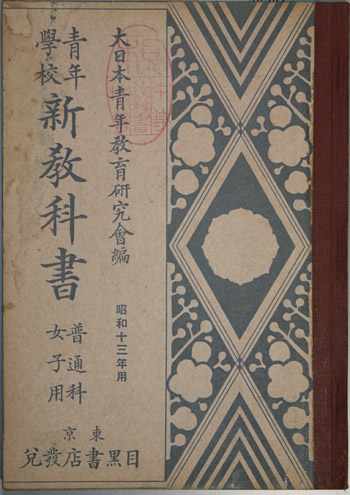 大日本青年教育研究會編
昭和十三年用
青年
學校
新教科書
普通科
女子用
東京
目黑書店發兌